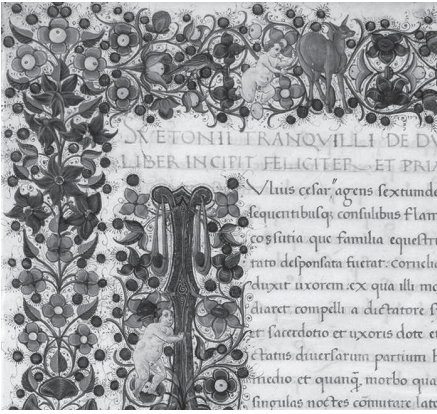 SVETONII TRANQVILLI DE DV
LIBER INCIPIT FELICITER ET PRIM
Vlius cesar agens sextumde
sequentibusq; consulibus flam
cossutia que familia equestri
tato desponsata fuerat: corneli
duxit uxorem: ex qua illi mo
diaret compelli a dictatore s
et sacerdotio et uxoris dote e
ctatus diversarum partium h
medio et quanq̃ morbo qua
singulas noctes cõmutare late